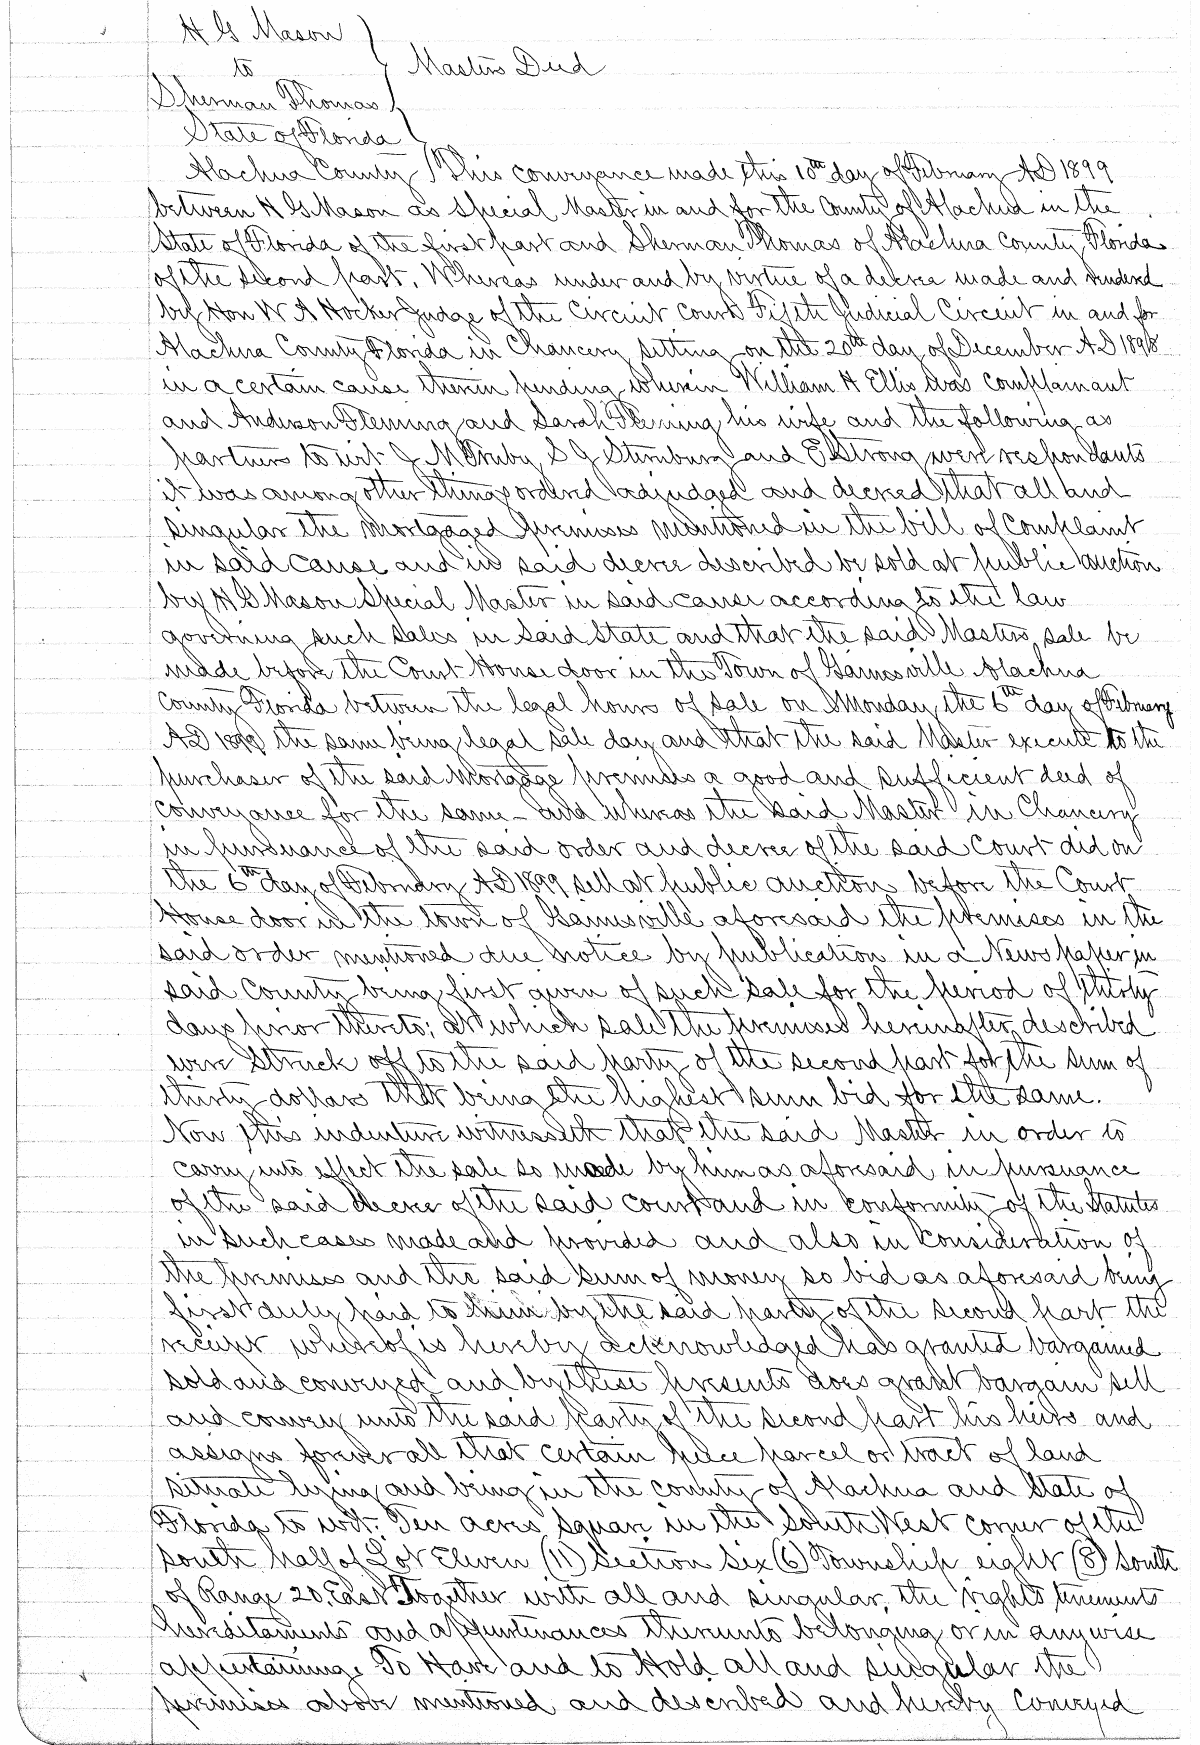 H G Mason
to
Masters Deed
Sherman Thomas
State of Florida
Alachua County This conveyance made this 10th day of February AD 1899
between H G Mason as Special Master in and for the County of Alachua in the
State of Florida of the first part and Sherman Thomas of Alachua County Florida
of the second part. Whereas under and by virtue of a decree made and rendered
by Hon W A Hocker Judge of the Circuit Court Fifth Judicial Circuit in and for
Alachua County Florida in Chancery sitting on the 20th day of December AD 1898
in a certain cause therein pending wherein William H Ellis was complainant
and Anderson Fleming and Sarah Fleming his wife and the following as
partners to wit J M Truby S J Sternburg and E Strong were respondants
it was among other things ordered adjudged and decreed that all and
singular the mortgaged premises mentioned in the bill of complaint
in said cause and in said decree described be sold at public auction
by H G Mason Special Master in said cause according to the law
governing such sales in said State and that the said Masters sale be
made before the Court House door in the Town of Gainesville Alachua
County Florida between the legal hours of sale on Monday the 6th day of February
AD 1899 the same being legal sale day and that the said Master execute to the
purchaser of the said mortgage premises a good and sufficient deed of
conveyance for the same - and whereas the said Master in Chancery
in pursuance of the said order and decree of the said Court did on
the 6th day of February AD 1899 sell at public auction before the Court
House door in the town of Gainesville aforesaid the premises in the
said order mentioned due notice by publication in a News paper in
said County being first given of such sale for the period of thirty
days prior thereto; at which sale the premises hereinafter described
were struck off to the said party of the second part for the sum of
thirty dollars that being the highest sum bid for the same.
Now this indenture witnesseth that the said Master in order to
carry into effect the sale so made by him as aforesaid in pursuance
of the said decree of the said court and in conformity of the Statutes
in such cases made and provided and also in consideration of
the premises and the said sum of money so bid as aforesaid being
first duly paid to him by the said party of the second part the
receipt whereof is hereby acknowledged has granted bargained
sold and conveyed and by these presents does grant bargain sell
and convey unto the said party of the second part his heirs and
assigns forever all that certain piece parcel or tract of land
situate lying and being in the county of Alachua and State of
Florida to wit: Ten acres square in the South West corner of the
south half of Lot Eleven (11) Section Six (6) Township eight (8) South
of Range 20, East Together with all and singular, the rights tenements
hereditaments and appurtenances thereunto belonging or in anywise
appertaining. To Have and to Hold all and singular the
premises above mentioned and described and hereby conveyed